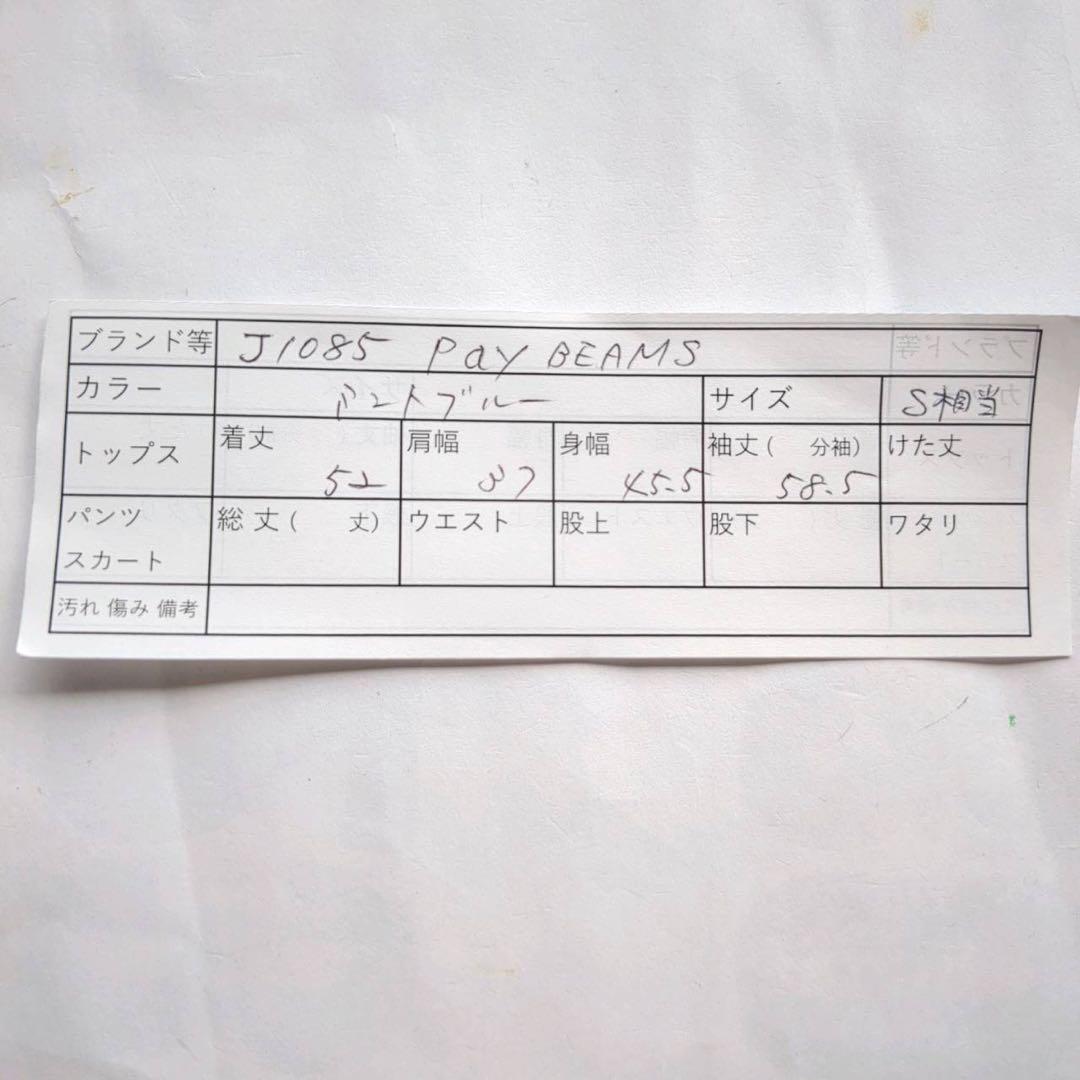 ブランド等 J1085 Pay BEAMS
カラー ミントブルー サイズ S相当
トップス 着丈 52 肩幅 37 身幅 45.5 袖丈( 分袖) 58.5 けた丈
パンツ スカート 総丈( 丈) ウエスト 股上 股下 ワタリ
汚れ 傷み 備考